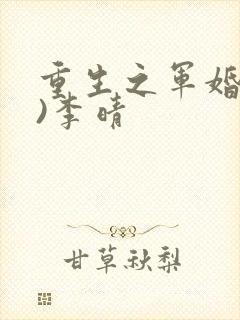 重生之军婚
)李晴
甘草秋梨